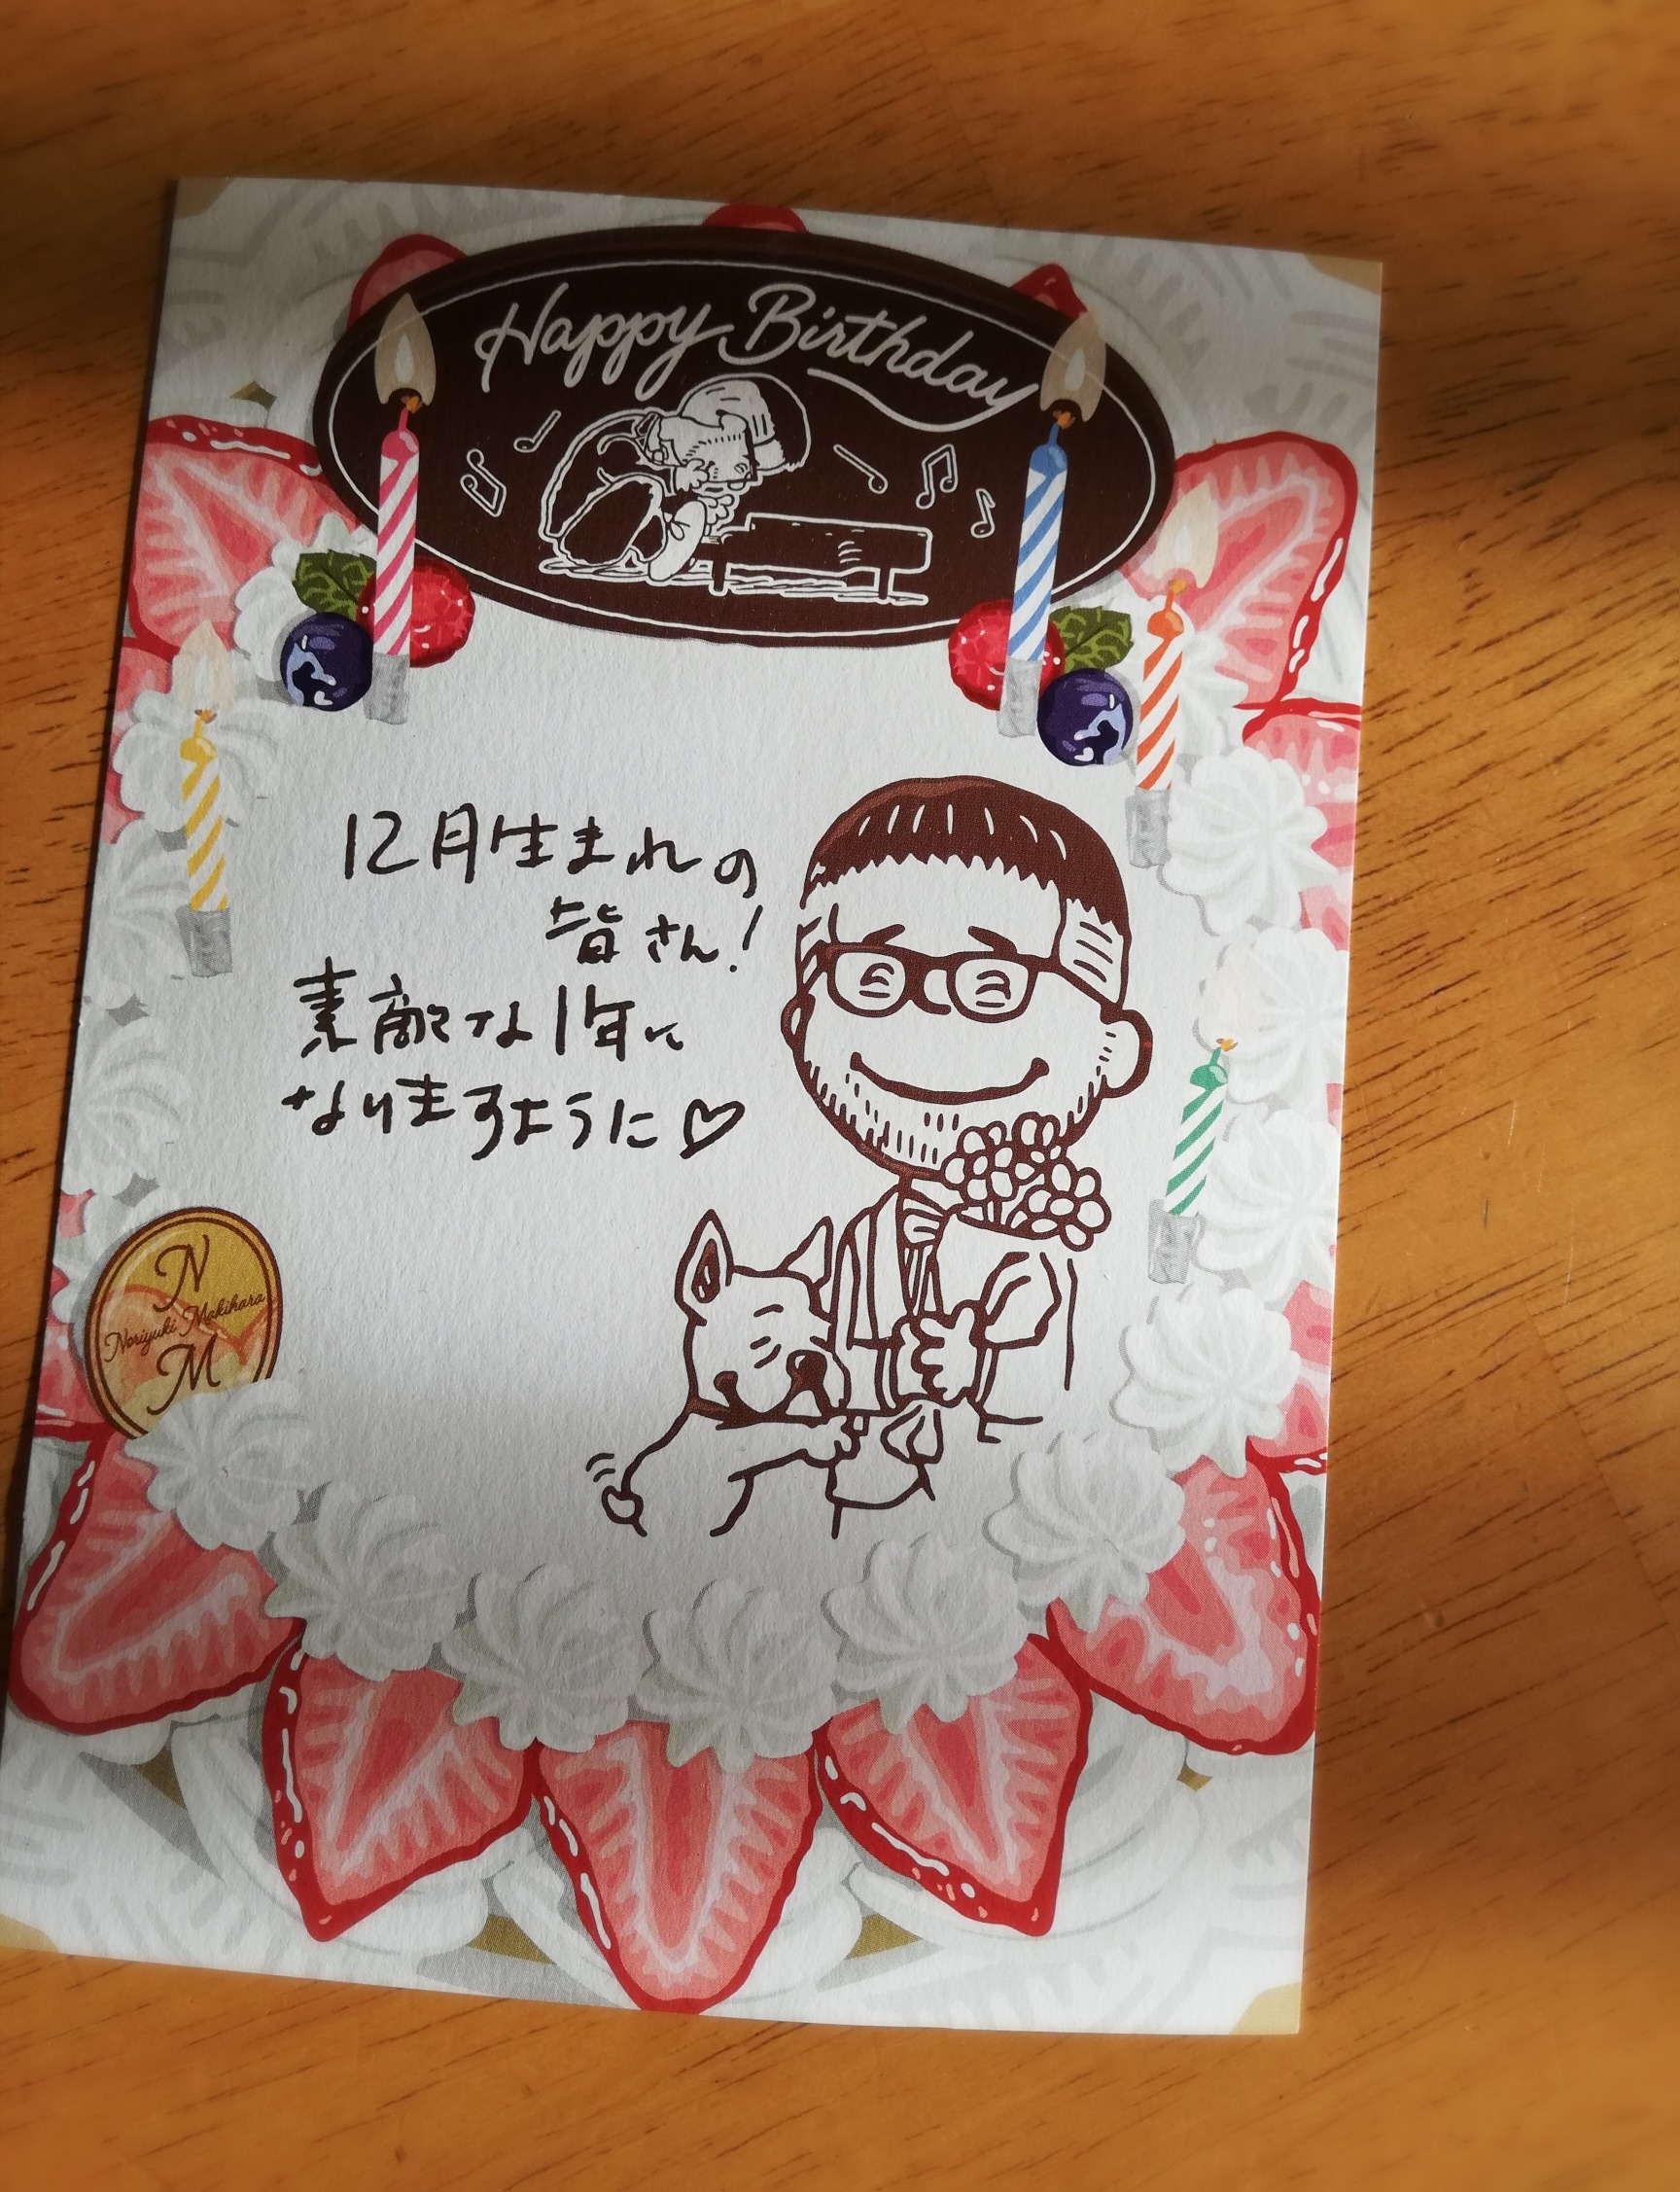 Happy Birthday
12月生まれの
皆さん!
素敵な1年に
なりますように♡
N
Noriyuki Makihara
M